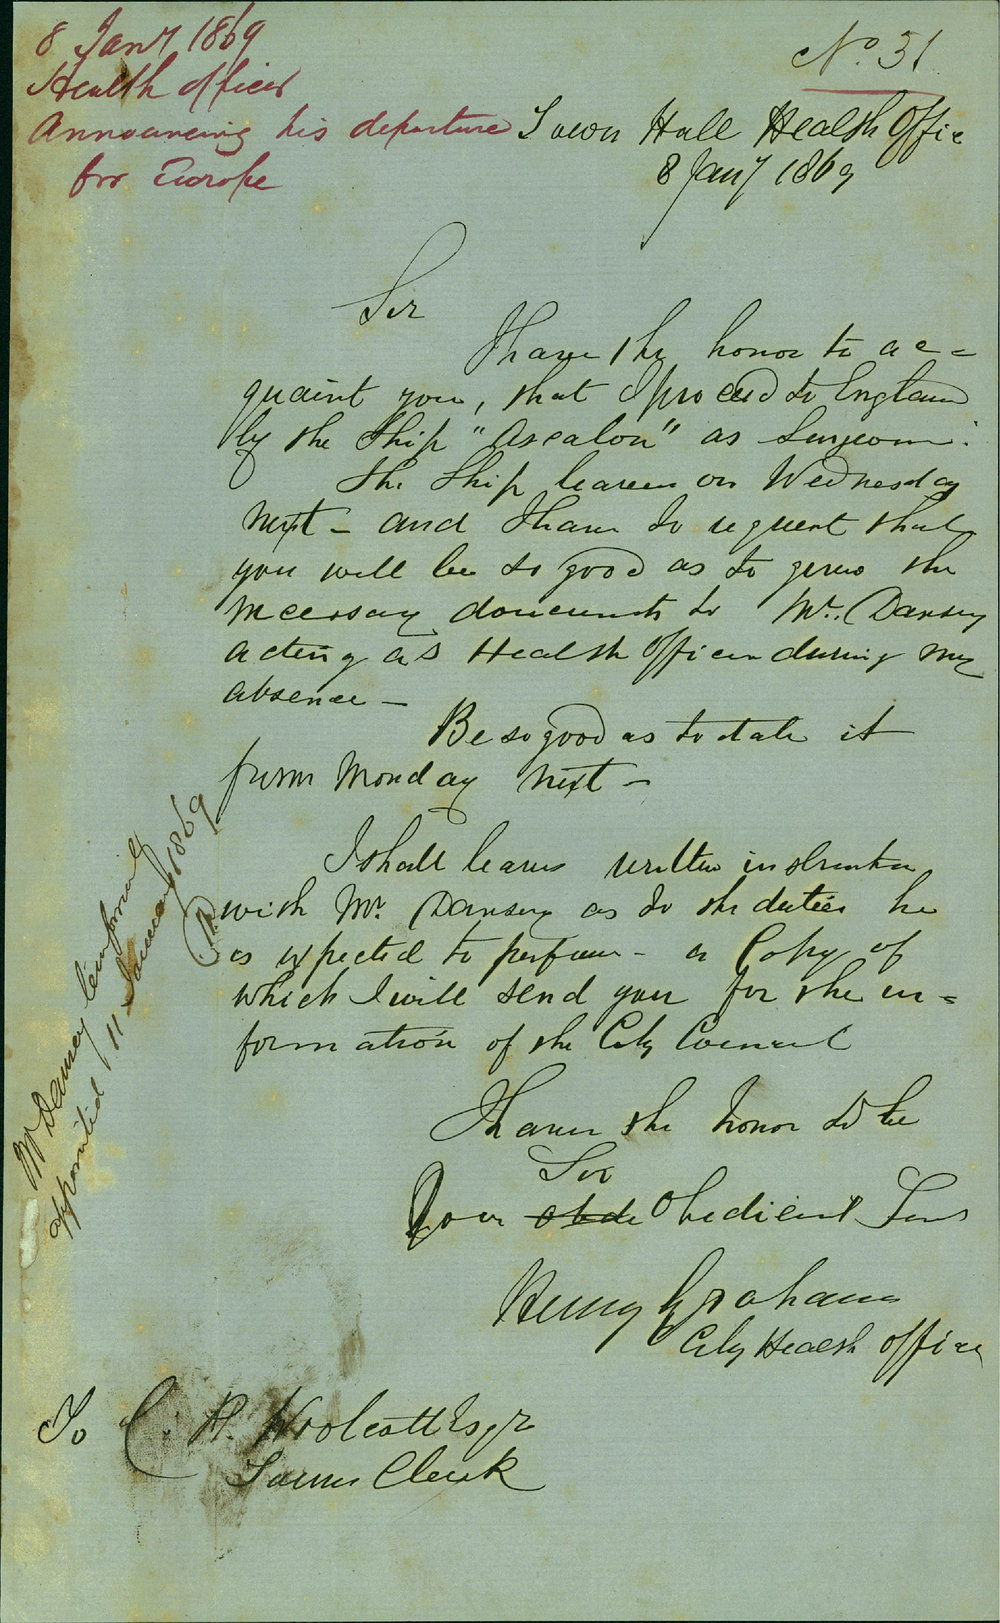 8 Jany 1869
Health Officer
Announcing his departure
for Europe
No. 31
Town Hall Health Office
8 Jany 1869
Sir
I have the honor to ac=
quaint you, that I proceed to England
by the Ship "Ascalon" as Surgeon.
The Ship leaves on Wednesday
next – and I have to request that
you will be so good as to give the
necessary documents to Mr. Dansey
acting as Health Officer during my
absence –
Be so good as to date it
from Monday next –
I shall leave written instruction
with Mr. Dansey as to the duties he
is expected to perform – a Copy of
which I will send you for the in=
formation of the City Council
I have the honor to be
Sir
Your obede Obedient Serv
Henry Graham
City Health Officer
To C. H. Woolcott Esqre
Town Clerk
Mr Dansey temporarily
appointed 11 January 1869